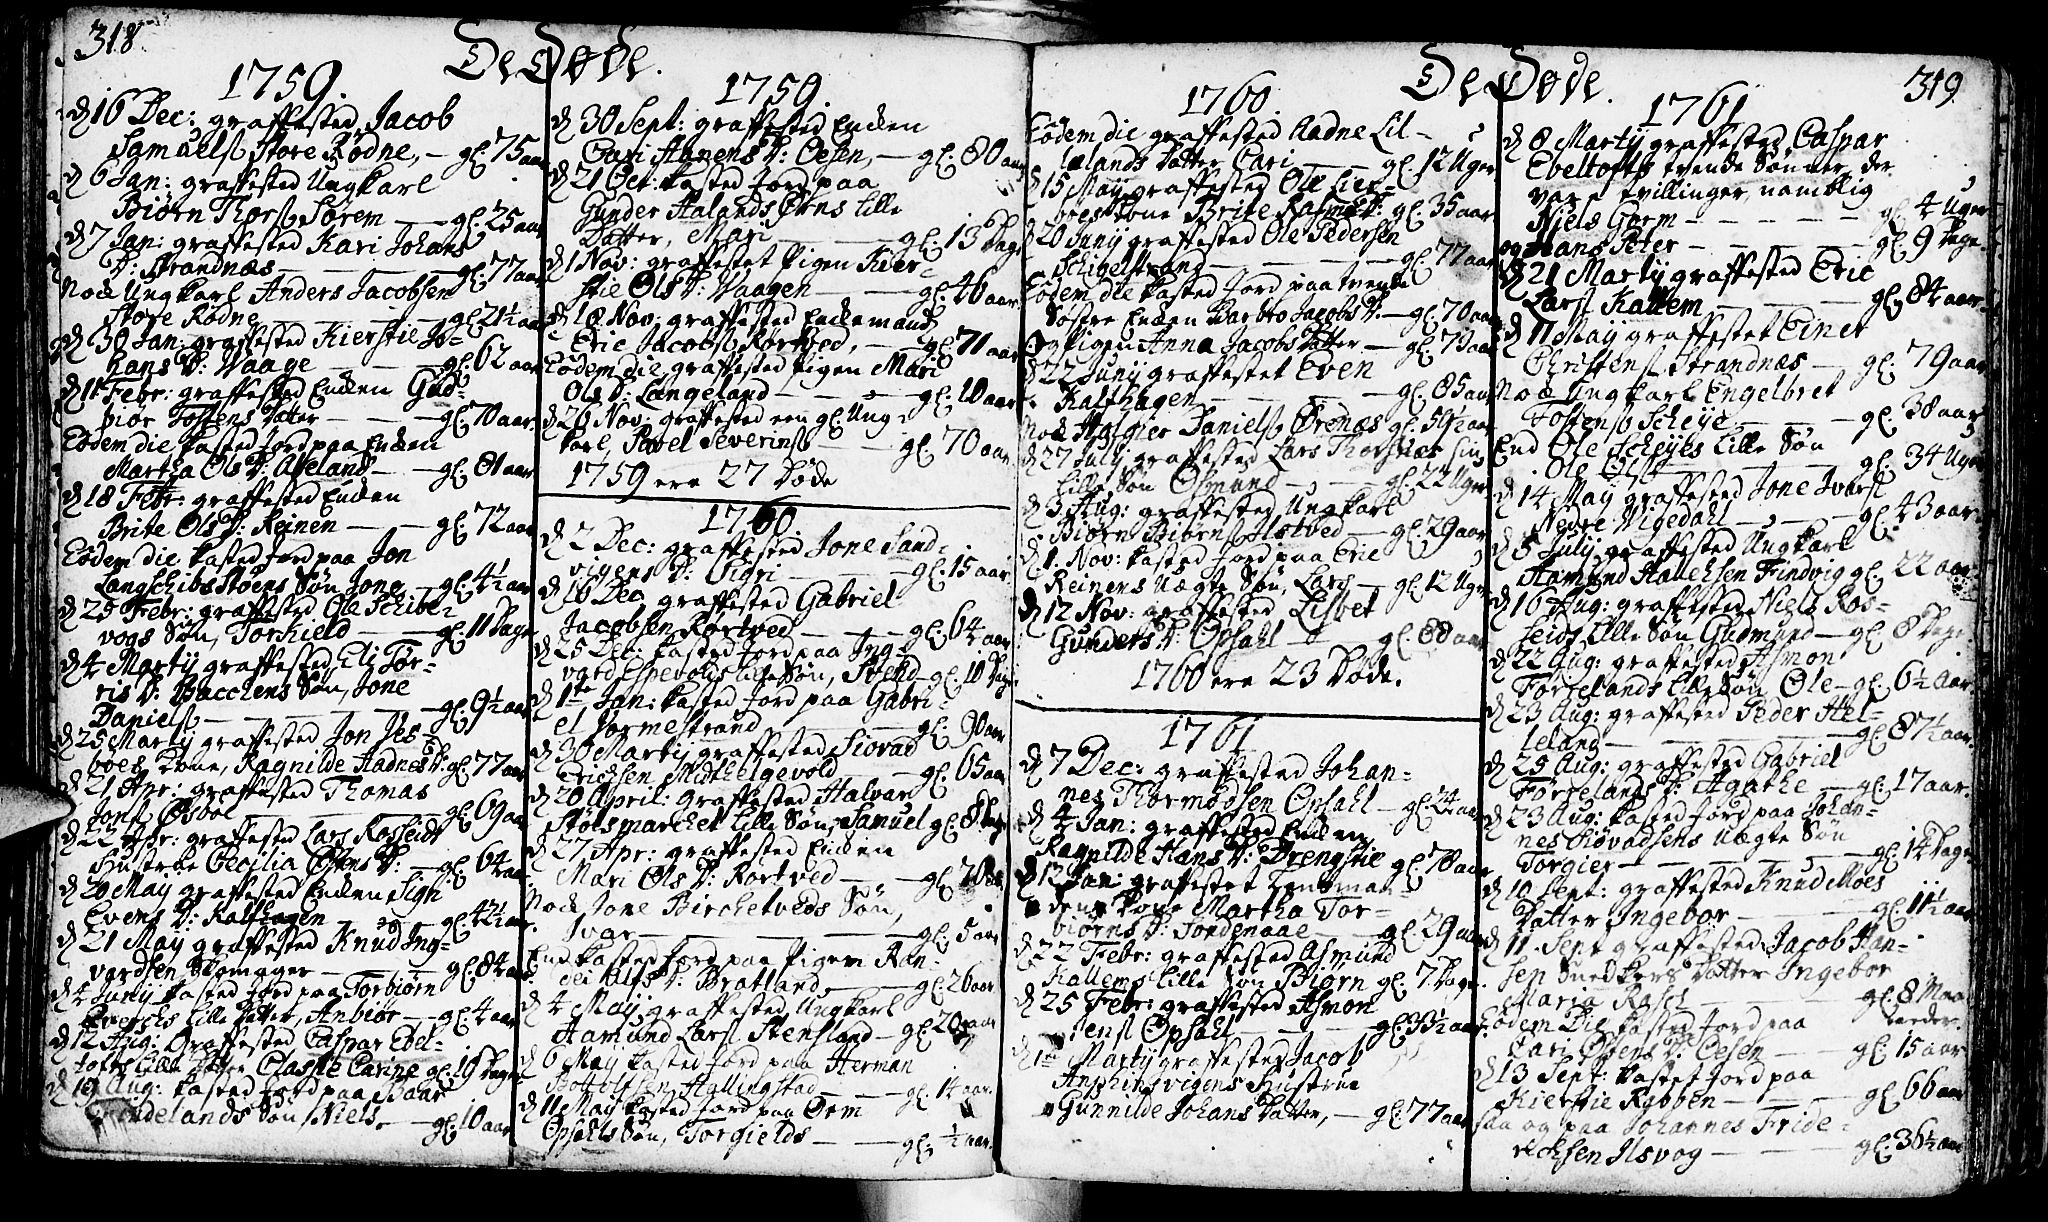 318.
De Døde.
1759.
d 16 Dec: graffested Jacob
Samuels Store Rødne, — gl. 75 aar
d 6 Jan: graffested Ungkarl
Biørn Thors Sørem — gl. 25 aar
d 7 Jan: graffested Kari Johans
D: Strandnæs — gl. 77 aar
Nock Ungkarl Anders Jacobsen
Store Rødne — gl. 21½ aar
d 30 Jan: graffested Kierstie Jo-
hans D: Waage — gl. 62 aar
d 11 Febr: graffested Enken Gud-
biør Tostens Datter — gl. 70 aar.
Eodem die kasted Jord paa Enken
Martha Ols D: Aveland — gl. 81 aar
d 18 Febr: graffested Enken
Brite Ols D: Reinen — gl. 72 aar
Eodem die kasted Jord paa Jon
Langschibs Støens Søn Jone — gl. 4½ aar
d 25 Febr: graffested Ole Schibe-
vogs Søn, Torkield — gl. 11 Dage
d 4 Martij graffested Eli Tør-
ris D: Bacchens Søn, Jone
Daniels — gl. 9½ aar
d 25 Martij graffested Jon Jes-
boes Kone, Ragnilde Aadnes D: gl. 77 aar
d 21 Apr: graffested Thomas
Jons Øsboe — gl. 69 aar
d 22 Apr: graffested Lars Rosseidt
Hustrue Cecilia Osens D: — gl. 64 aar
d 20 May graffested Enken Sign
Evens D: Kalfhagen — gl. 42½ aar
d 21 May graffested Knud Ing-
vardsen Skomager — gl. 84 aar
d 4 Junij kasted Jord paa Torbiørn
lille Datter, Anbiør — gl. 4 aar
d 12 Aug: Graffested Caspar Ebel-
tofts lille Datter Claske Carine gl. 19 Dage
d 19 Aug: kasted Jord paa Baar
Søn Niels — gl. 10 aar
1759.
d 30 Sept: graffested Enken
Cari Aanens D: Oesen, — gl. 80 aar
d 21 Oct: kasted Jord paa
Gunder Aalands Ørns lille
Datter, Mari — gl. 13 Dage
d 1 Nov: graffestet Pigen Kier-
stie Ols D: Vaagen — gl. 46 aar.
d 18 Nov: graffested Enkemand
Eric Jacobs Rørtved, — gl. 71 aar
Eodem die graffested Pigen Mari
Ols D: Langeland — gl. 10 aar
d 26 Nov: graffested een gl. Ung-
karl, Povel Severins — gl. 70 aar.
1759 ere 27 Døde
1760.
d 2 Dec: graffested Jone Sand-
vigens D: Sigri — gl. 15 aar.
d 16 Dec graffested Gabriel
Jacobsen Rørtved — gl. 64 aar
d 25 Dec: kasted Jord paa Ing-
vard Espevolds lille Søn, Svend gl. 10 Dage.
d 1te Jan: kasted Jord paa Gabri-
el Vormestrand — gl. 90 aar
d 30 Martij graffested Siovard
Erichsen Midthelgevold — gl. 65 aar
d 20 April: Graffested Halvar
Stølsmarchet lille Søn, Samuel gl. 8 Dage
d 27 Apr: graffested Enken
Mari Ols D: Rørtved — gl. 70 aar
Nock Jone Birchetveds Søn,
Ivar — gl. 5 aar
End kasted Jord paa Pigen Ran-
dei Alfs D: Bratland — gl. 26 aar
d 4 May graffested Ungkarl
Aamund Lars Stensland — gl. 20 aar
d 6 May kasted Jord paa Herman
Botolfsen Hallingstad — gl. 14 aar.
d 11 May kasted Jord paa Orm
Opsals Søn, Torgields — gl. ½ aar.
319.
De Døde.
1760.
Eodem die graffested Aadne Lil-
lelands Datter Cari — gl. 12 Uger
d 15 May graffested Ole Lier-
boes Kone Brite Rasmus D: gl. 35 aar
d 20 Junij graffested Ole Pedersen
Schigelstrand — gl. 77 aar
Eodem die kasted Jord paa tvende
Søstre Enken Barbro Jacobs D: — gl. 70 aar
Og Pigen Anna Jacobs Datter — gl. 73 aar
d 22 Junij graffestet Even
Kalfhagen — gl. 85 aar
Nock Asgier Daniels Ørenæs gl. 59½ aar
d 27 Julij graffested Lars Thorsnæs sin
lille Søn Osmund — gl. 22 Uger
d 3 Aug: graffested Ungkarl
Biørn Biørns Østved — gl. 29 aar
d 1. Nov: kasted Jord paa Eric
Reiners Uægte Søn, Lars — gl. 12 Uger
d 12 Nov: graffested Lisbet
Gunders D: Opsahl — gl. 88 aar
1760 ere 23 Døde.
1761
d 7 Dec: graffested Johan-
nes Thormodsen Opsahl — gl. 24 aar
d 4 Jan: graffested Enken
Ragnilde Hans D: Drengstie gl. 78 aar
d 12 Jan: graffestet Lensman-
dens Kone Martha Tor-
biørns D: Tordenaae — gl. 29 aar
d 22 Febr: graffested Asmund
Kallems lille Søn Biørn gl. 7 Dage.
d 25 Febr: graffested Asmon
Jens Opsahl — gl. 33½ aar
d 1te Martij graffested Jacob
Anphinsvigens Hustrue
Gunnilde Johans Datter, — gl. 77 aar
1761
d 8 Martij graffested Caspar
Ebeltofts tvende Sønner der
vare tvillinger, namblig
Niels Gorm — gl. 4 Uger
og Hans Peter — gl. 9 Dage
d 21 Martij graffested Eric
Lars Kallem — gl. 84 aar
d 11 May graffestet Einer
Christens Strandnæs — gl. 79 aar
Nock Ungkarl Engelbret
Tostens Scheije — gl. 38 aar
End Ole Scheijes lille Søn
Ole Ols — gl. 34 Uger
d 14 May graffested Jone Ivars
Nedre Vigedahl — gl. 43 aar.
d 5 Julij graffested Ungkarl
Aamund Hallchsen Findvig gl. 22 aar.
d 16 Aug: graffested Niels Ros-
seids lille Søn Gudmund — gl. 8 Dage.
d 22 Aug: graffested Asmon
Førrelands lille Søn Ole gl. 6½ aar
d 23 Aug: graffested Peder Hel-
leland — gl. 87½ aar.
d 25 Aug: graffested Gabriel
Førrelands D: Agathe — gl. 17 aar.
d 23 Aug: kasted Jord paa Johan-
nes Siovadsens Uægte Søn
Torgier — gl. 14 Dage
d 10 Sept: graffested Knud Moes
Datter Ingebor — gl. 11½ aar
d 11 Sept graffested Jacob Han-
sen Snedkers Datter Ingebor
Maria Kasel — gl. 8 Maa-
neder.
Eodem Die kasted Jord paa
Cari Osens D: Oesen — gl. 15 aar
d 13 Sept: kastet Jord paa
Kierstie Rybben — gl. 66 aar
saa og paa Johannes Fride-
richsen Ilsvog — gl. 36½ aar